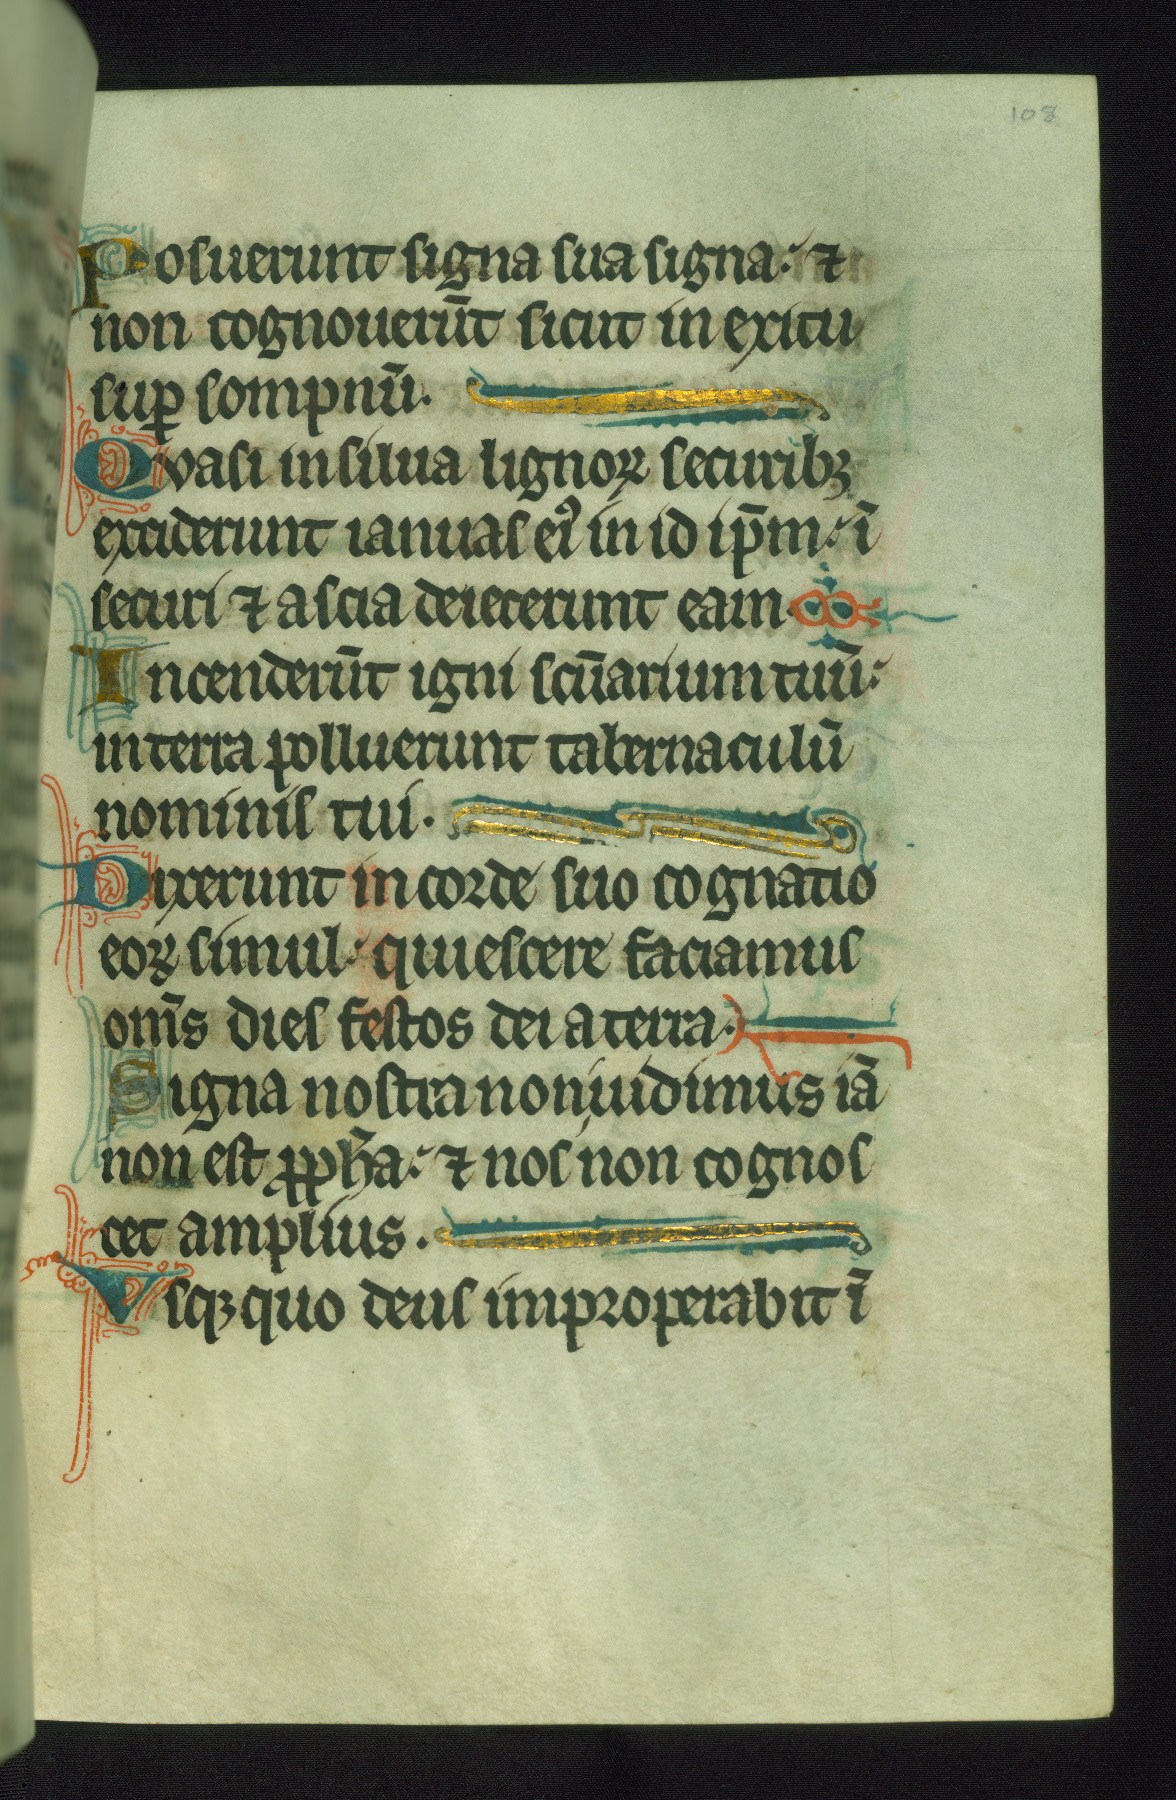 108
Posuerunt signa sua signa: ⁊
non cognouerūt sicut in exitu
suꝑ sompnū.
Qvasi in silua lignoꝝ securibꝫ
exciderunt ianuas eiꝰ in id ip̄m: ī
securi ⁊ ascia deiecerunt eam.
Incenderūt igni scūarium tuū:
in terra polluerunt tabernaculū
nominis tui.
Dixerunt in corde suo cognatio
eoꝝ simul: quiescere faciamus
om̄s dies festos dei a terra.
Signa nostra non uidimus iā
non est ꝓph̄a: ⁊ nos non cognos
cet amplius.
Vsqꝫ quo deus improperabit ī